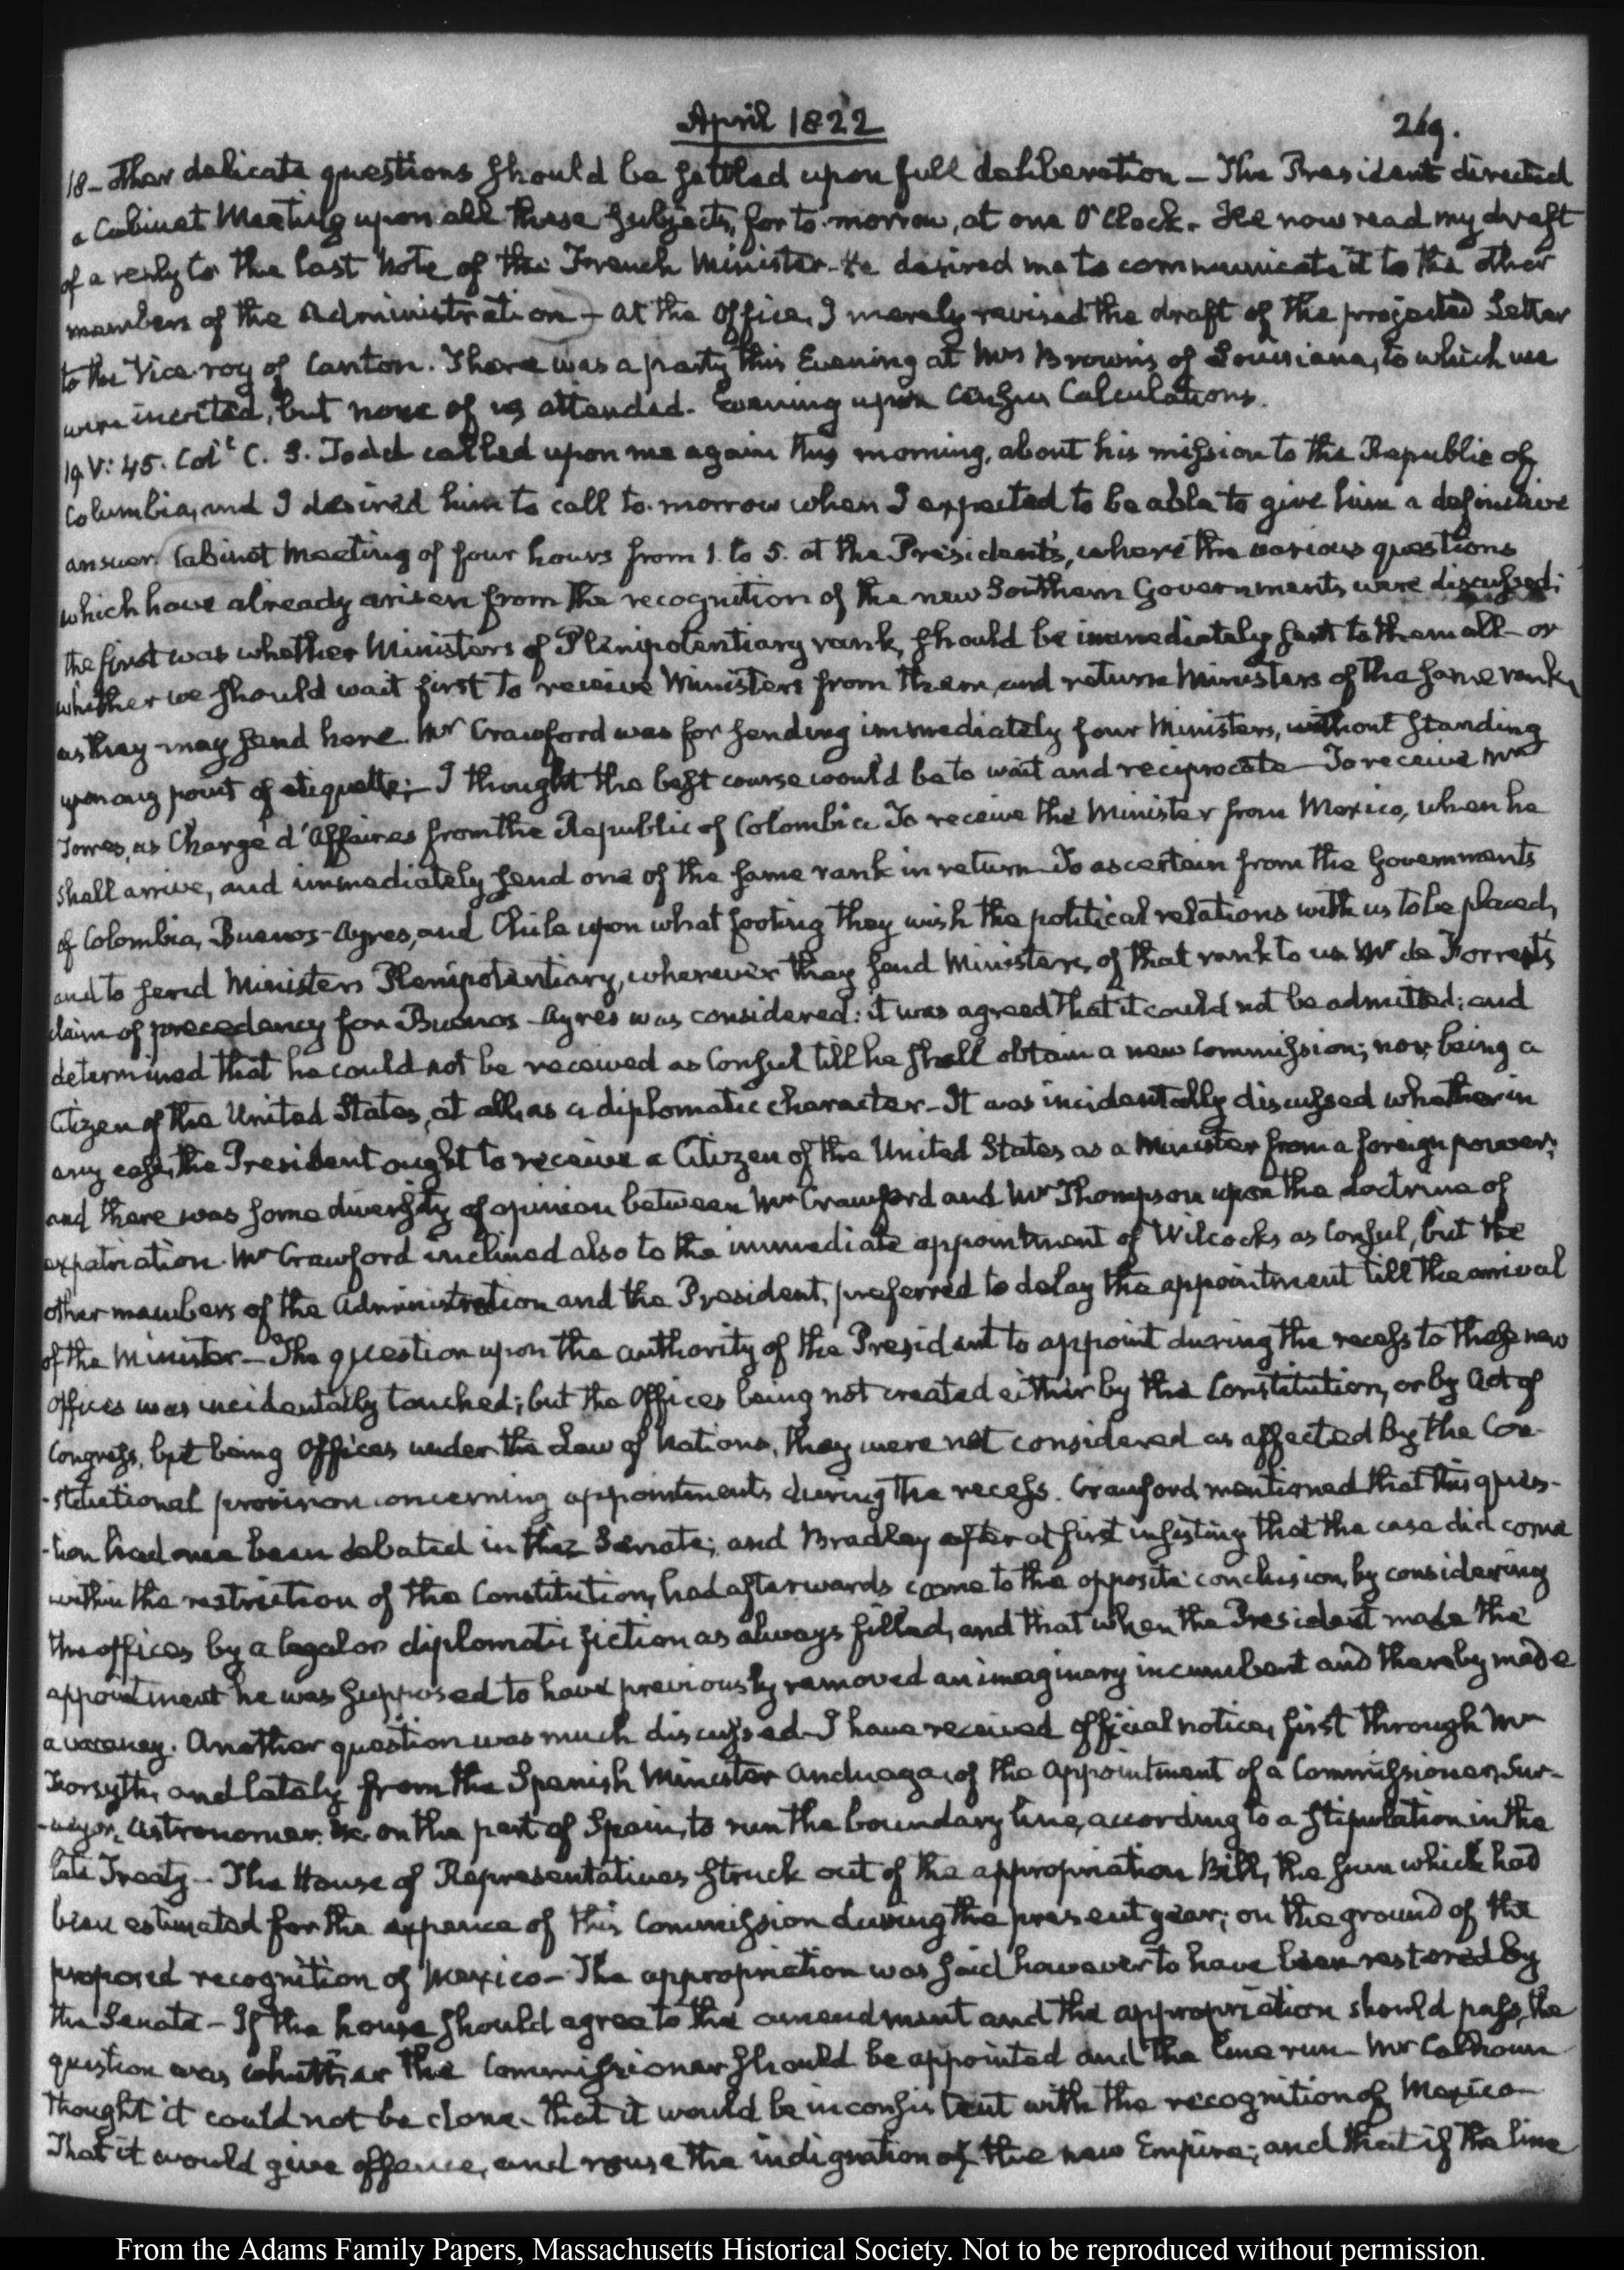 April 1822
269.
18 - other delicate questions should be settled upon full deliberation - The President directed
a Cabinet Meeting upon all these subjects, for to-morrow, at one O'Clock. He now read my draft
of a reply to the last Note of the French Minister - He desired me to communicate it to the other
members of the Administration - At the Office, I merely revised the draft of the projected Letter
to the Vice-roy of Canton. There was a party this Evening at Mrs Brown's of Louisiana, to which we
were invited, but none of us attended. Evening upon Census Calculations.
19. V: 45. Coll C. S. Todd called upon me again this morning, about his mission to the Republic of
Columbia, and I desired him to call to-morrow when I expected to be able to give him a definitive
answer. Cabinet Meeting of four hours from 1. to 5. at the President's, where the various questions
which have already arisen from the recognition of the new Southern Governments were discussed:
the first was whether Ministers of Plenipotentiary rank, should be immediately sent to them all - or
whether we should wait first to receive Ministers from them, and return Ministers of the same rank,
as they may send here. Mr Crawford was for sending immediately four Ministers, without standing
upon any point of etiquette; - I thought the best course would be to wait and reciprocate - To receive Mr
Torres, as Chargé d'Affaires from the Republic of Colombia - To receive the Minister from Mexico, when he
shall arrive, and immediately send one of the same rank in return - To ascertain from the Governments
of Colombia, Buenos-Ayres, and Chile upon what footing they wish the political relations with us to be placed,
and to send Ministers Plenipotentiary, wherever they send Ministers, of that rank to us. Mr de Forrest's
claim of precedency for Buenos-Ayres was considered: it was agreed that it could not be admitted; and
determined that he could not be received as Consul till he shall obtain a new Commission; nor, being a
Citizen of the United States, at all, as a diplomatic character - It was incidentally discussed whether in
any case, the President ought to receive a Citizen of the United States as a Minister from a foreign power;
and there was some diversity of opinion between Mr Crawford and Mr Thompson upon the doctrine of
expatriation. Mr Crawford inclined also to the immediate appointment of Wilcocks as Consul, but the
other members of the Administration and the President, preferred to delay the appointment till the arrival
of the Minister - The question upon the authority of the President to appoint during the recess to these new
Offices was incidentally touched; but the Offices being not created either by the Constitution, or by Act of
Congress, but being Offices under the Law of Nations, they were not considered as affected by the Con-
-stitutional provision concerning appointments during the recess. Crawford mentioned that this ques-
-tion had once been debated in the Senate; and Bradley after at first insisting that the case did come
within the restriction of the Constitution, had afterwards come to the opposite conclusion, by considering
the offices by a legal or diplomatic fiction as always filled, and that when the President made the
appointment he was supposed to have previously removed an imaginary incumbent and thereby made
a vacancy. Another question was much discussed - I have received official notice, first through Mr
Forsyth, and lately from the Spanish Minister Anduaga, of the appointment of a Commissioner, Sur-
-veyor, Astronomer, &c on the part of Spain, to run the boundary line, according to a stipulation in the
late Treaty - The House of Representatives struck out of the appropriation Bill, the sum which had
been estimated for the expence of this Commission during the present year; on the ground of the
proposed recognition of Mexico - The appropriation was said however to have been restored by
the Senate - If the house should agree to the amendment and the appropriation should pass, the
question was whether the Commissioner should be appointed and the line run - Mr Calhoun
thought it could not be done - that it would be inconsistent with the recognition of Mexico -
That it would give offence, and rouse the indignation of the new Empire; and that if the line
From the Adams Family Papers, Massachusetts Historical Society. Not to be reproduced without permission.